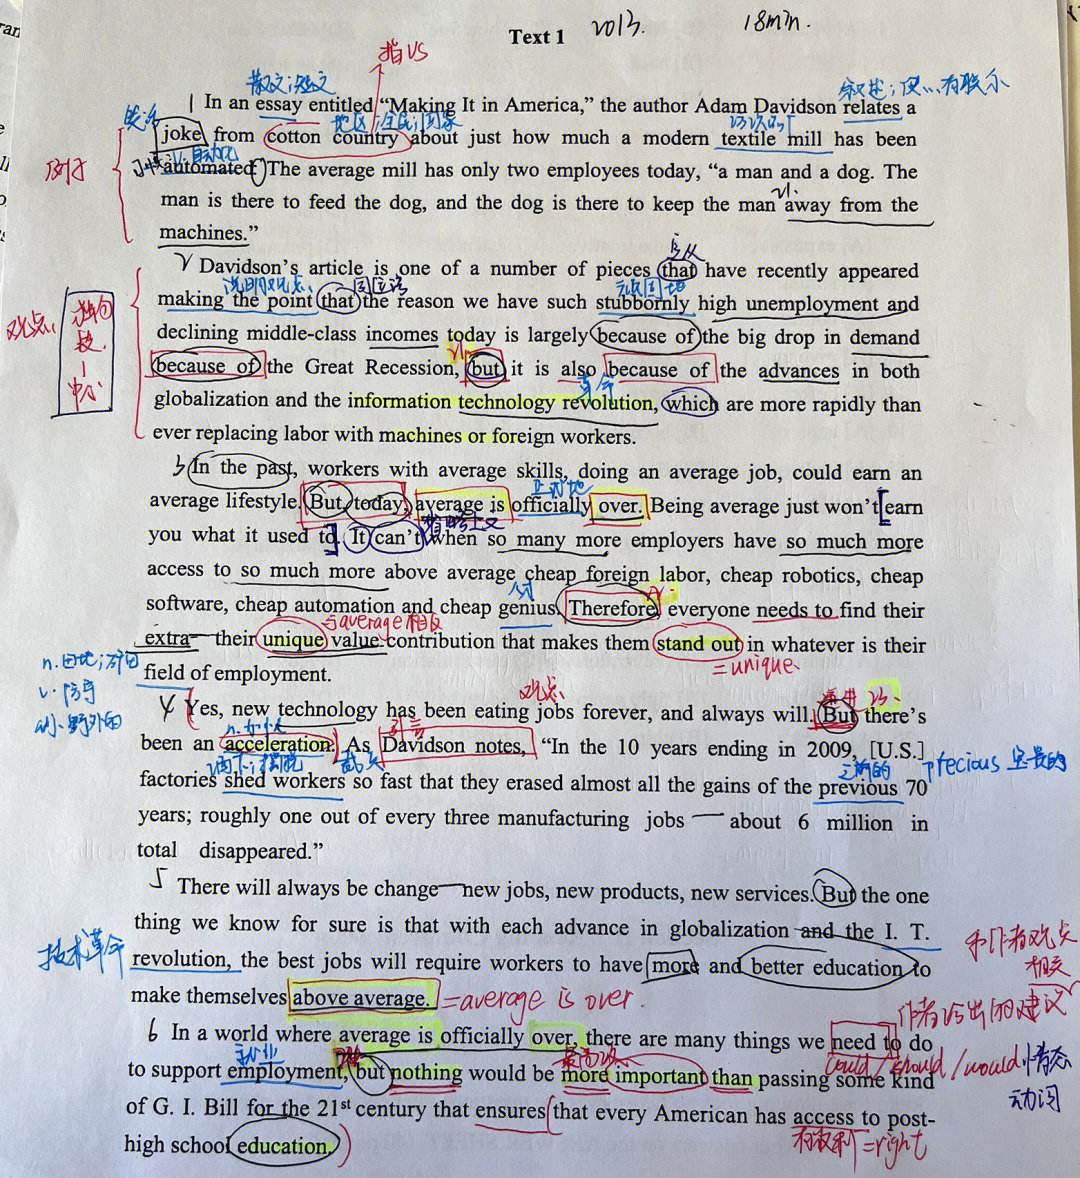 Text 1 2013. 18min.
指US
散文;短文 叙述;使…有联系
1 In an essay entitled "Making It in America," the author Adam Davidson relates a
地区;国家
joke from cotton country about just how much a modern textile mill has been
例子 v.自动化
automated. The average mill has only two employees today, "a man and a dog. The
man is there to feed the dog, and the dog is there to keep the man away from the
machines."
定从
2 Davidson's article is one of a number of pieces that have recently appeared
说明观点 同位语 顽固地
making the point that the reason we have such stubbornly high unemployment and
观点
declining middle-class incomes today is largely because of the big drop in demand
because of the Great Recession, but it is also because of the advances in both
革命
globalization and the information technology revolution, which are more rapidly than
ever replacing labor with machines or foreign workers.
3 In the past, workers with average skills, doing an average job, could earn an
正式地
average lifestyle. But, today, average is officially over. Being average just won't earn
you what it used to. It can't when so many more employers have so much more
access to so much more above average cheap foreign labor, cheap robotics, cheap
software, cheap automation and cheap genius. Therefore, everyone needs to find their
与average相反
extra— their unique value contribution that makes them stand out in whatever is their
=unique
field of employment.
v.防守
观点
4 Yes, new technology has been eating jobs forever, and always will. But there's
n.加快 引言
been an acceleration. As Davidson notes, "In the 10 years ending in 2009, [U.S.]
之前的 precious 宝贵的
factories shed workers so fast that they erased almost all the gains of the previous 70
years; roughly one out of every three manufacturing jobs — about 6 million in
total disappeared."
5 There will always be change—new jobs, new products, new services. But the one
thing we know for sure is that with each advance in globalization and the I. T.
技术革命 和作者观点
revolution, the best jobs will require workers to have more and better education to
相关
make themselves above average. =average is over.
作者给出的建议
6 In a world where average is officially over, there are many things we need to do
就业 最高级 could/should/would情态
to support employment, but nothing would be more important than passing some kind
动词
of G. I. Bill for the 21st century that ensures that every American has access to post-
有权利=right
high school education.